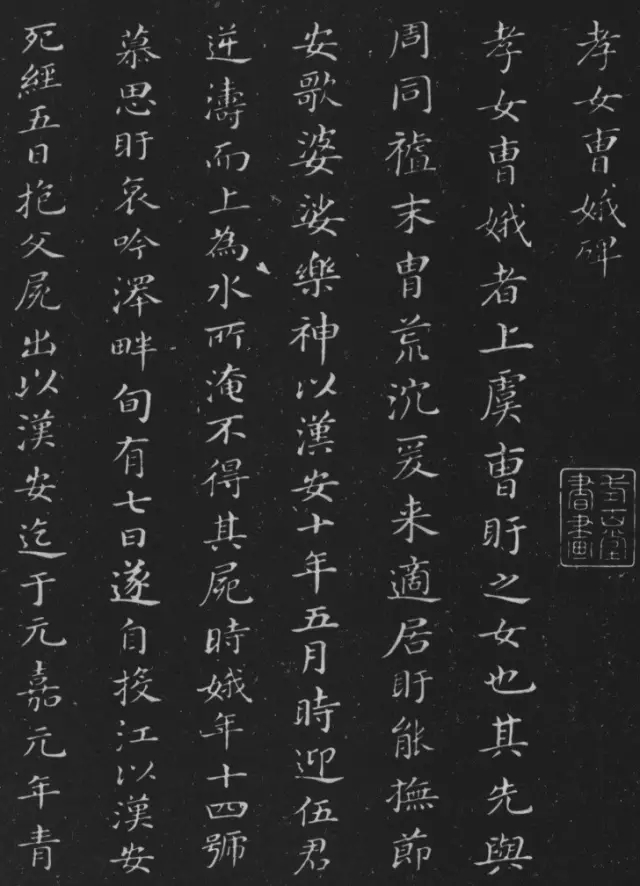 孝女曹娥碑
孝女曹娥者上虞曹盱之女也其先與
周同末冑荒沉爰来適居盱能撫節
安歌婆娑樂神以漢安十年五月時迎伍君
逆濤而上為水所淹不得其屍時娥年十四號
慕思盱哀吟澤畔旬有七日遂自投江以漢安
死經五日抱父屍出以漢安迄于元嘉元年青
書畫